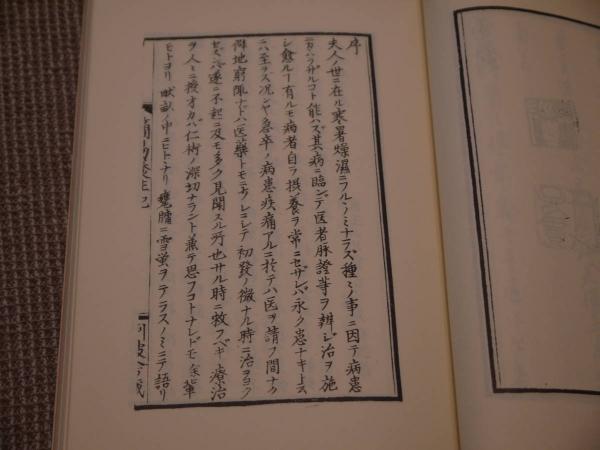 序
夫人ノ世ニ在ル寒暑燥濕ニフルヽノミナラズ種々ノ事ニ因テ病患
ニカヽラザルコト能ハズ其病ニ臨ンデ医者脉證等ヲ辨ジ治ヲ施
シ愈ルヿ有ルモ病者自ラ摂養ヲ常ニセザレバ永ク患ナキトス
ニハ至ラズ況ンヤ急卒ノ病患疾痛アルニ於テハ医ヲ請フ間ナク
僻地窮陬ナドハ医藥トモニウレニシテ初發ノ微ナル時ニ治ヲヨク
セズ遂ニ不起ニ及モ多ク見聞スル所也サル時ニ救フベキ療治
ヲ人々ニ授オカバ仁術ノ深切ナラント兼テ思フコトナレドモ余輩
モトヨリ畎畝ノ中ニヒトヽナリ甕牖ニ雪蛍ヲテラスノミニテ語リ